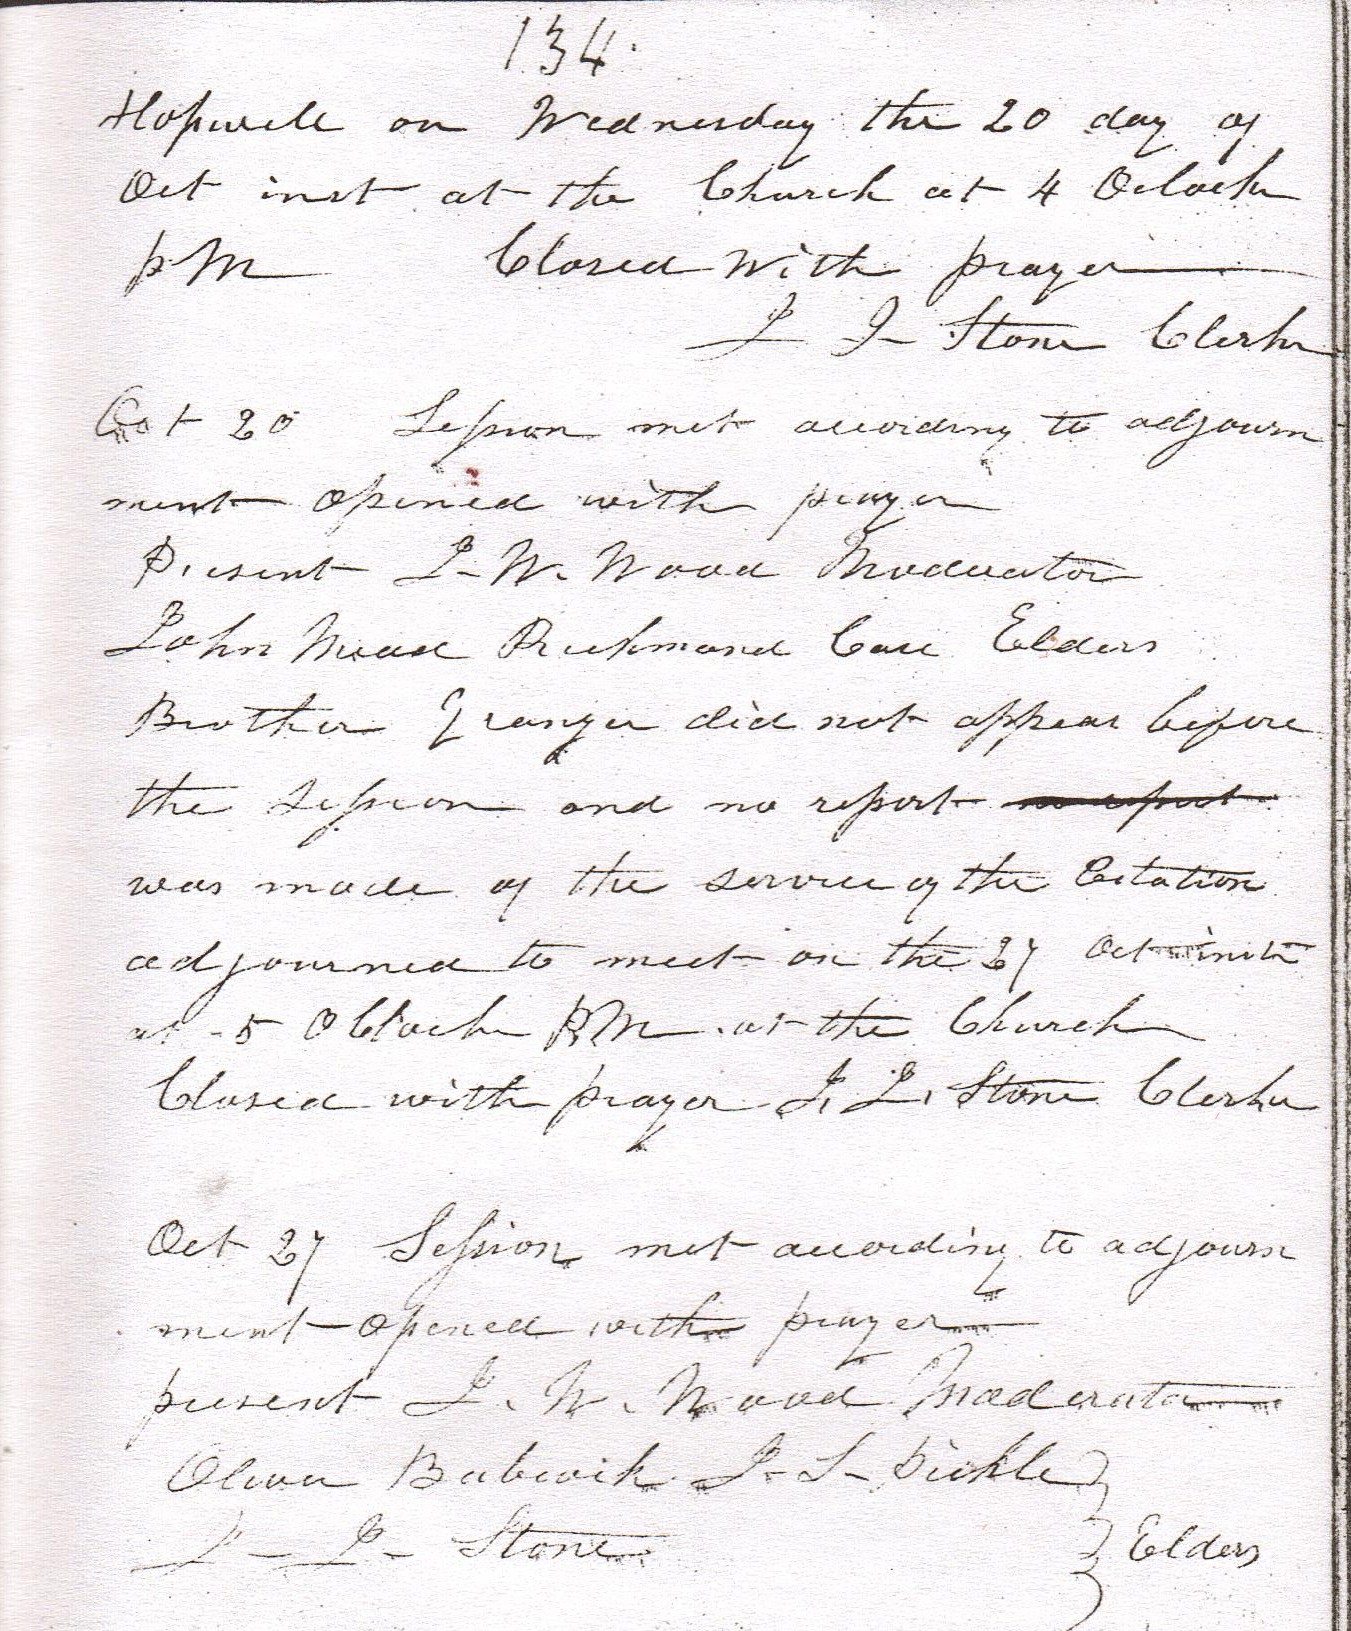 134.
Hopwell on Wednesday the 20 day of
Oct inst at the Church at 4 Oclock
PM Closed With prayer
J J Stone Clerk
Oct 20 Session met according to adjourn
ment Opened with prayer
Present J W. Wood Moderator
John Mead Richmond Case Elders
Brother Granger did not appear before
the session and no report no report
was made of the service of the Citation
adjourned to meet on the 27 Oct inst
at 5 OClock PM. at the Church
Closed with prayer J. J. Stone Clerk
Oct 27 Session met according to adjourn
ment Opened with prayer
present J. W. Wood Moderator
Oliver Babcock J S Pickle
J J Stone Elders